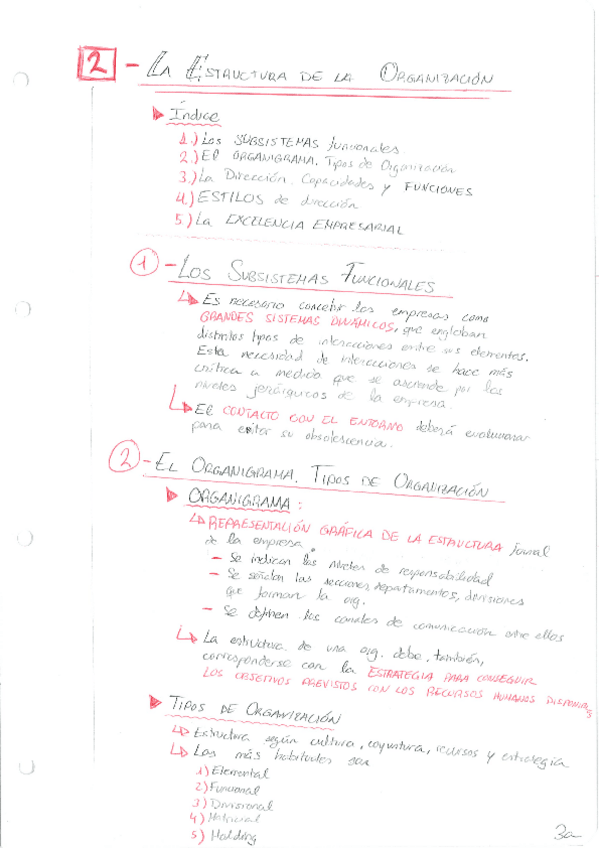 2 - La Estructura de la Organización
Índice
1.) Los SUBSISTEMAS funcionales
2.) El ORGANIGRAMA. Tipos de Organización
3.) La Dirección. Capacidades y FUNCIONES
4.) ESTILOS de dirección
5.) La EXCELENCIA EMPRESARIAL
1 - Los Subsistemas Funcionales
Es necesario concebir las empresas como
GRANDES SISTEMAS DINÁMICOS, que engloban
distintos tipos de interacciones entre sus elementos.
Esta necesidad de interacciones se hace más
crítica a medida que se asciende por los
niveles jerárquicos de la empresa.
El CONTACTO CON EL ENTORNO deberá evolucionar
para evitar su obsolescencia.
2 - El Organigrama. Tipos de Organización
ORGANIGRAMA:
REPRESENTACIÓN GRÁFICA DE LA ESTRUCTURA formal
de la empresa.
- Se indican los niveles de responsabilidad
- Se señalan las secciones, departamentos, divisiones
que forman la org.
- Se definen los canales de comunicación entre ellos
La estructura de una org. debe, también,
corresponderse con la ESTRATEGIA PARA CONSEGUIR
LOS OBJETIVOS PREVISTOS CON LOS RECURSOS HUMANOS DISPONIBLES
Tipos de Organización
Estructura según cultura, coyuntura, recursos y estrategia
Las más habituales son
1) Elemental
2) Funcional
3) Divisional
4) Matricial
5) Holding